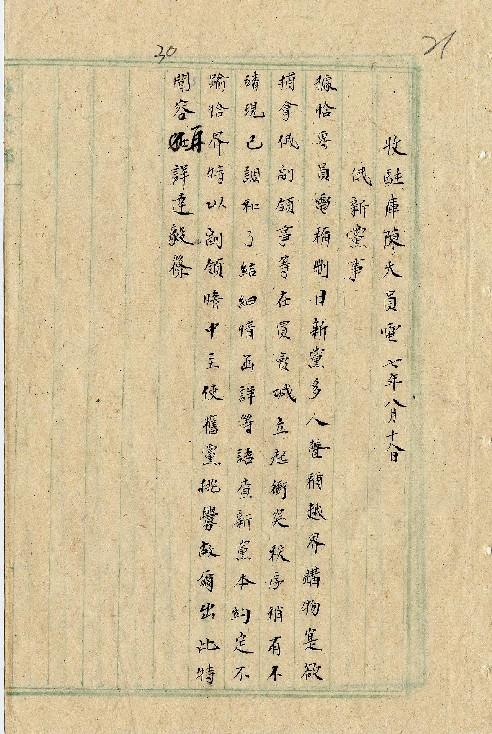 21
30
收駐庫陳大員電 七年八月十八日
俄新黨事
據恰專員電稱刪日新黨多人聲稱越界購物寔欲
捕拿俄副領事等在買賣城立起衝突秩序稍有不
靖現已調和了結細情函詳等語查新黨本約定不
踰恰界特以副領暗中主使舊黨挑釁故爾出此特
聞容再詳達毅篠